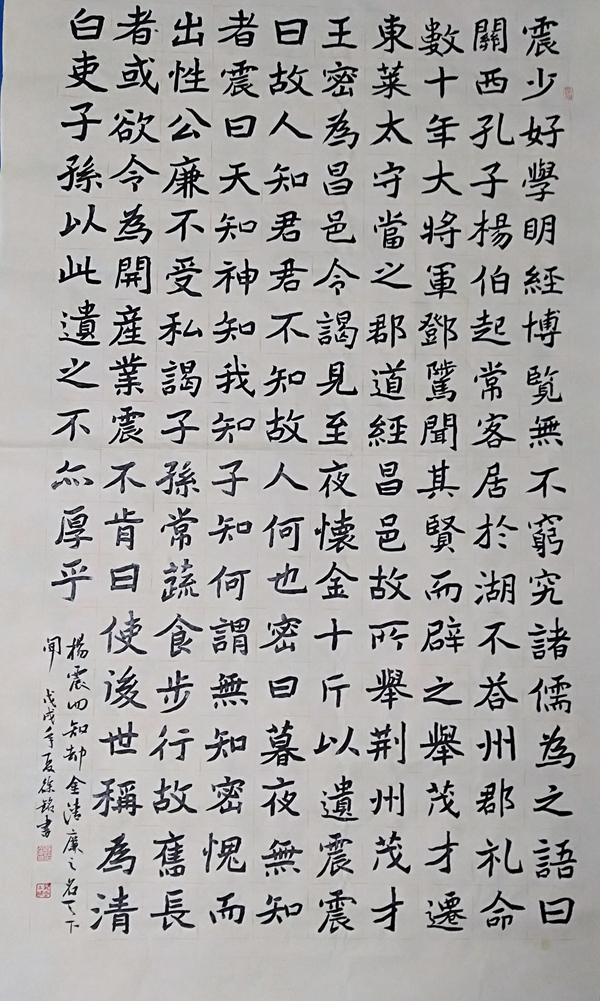 震少好學明經博覽無不窮究諸儒為之語曰
關西孔子楊伯起常客居於湖不荅州郡礼命
數十年大將軍鄧騭聞其賢而辟之舉茂才遷
東萊太守當之郡道經昌邑故所舉荆州茂才
王密為昌邑令謁見至夜懷金十斤以遺震震
曰故人知君君不知故人何也密曰暮夜無知
者震曰天知神知我知子知何謂無知密愧而
出性公廉不受私謁子孫常蔬食步行故舊長
者或欲令為開産業震不肯曰使後世稱為清
白吏子孫以此遺之不亦厚乎
楊震四知却金清廉之名天下
聞 戊戌年夏徐銘書